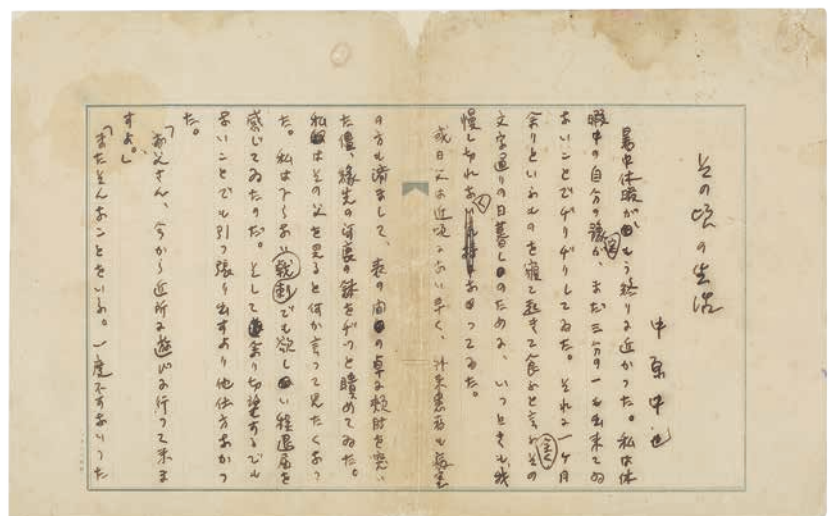 その頃の生活
中原中也
暑中休暇が、もう終りに近かつた。私は休
暇中の自分の課が、まだ三分の一も出来てゐ
ないことでヂリヂリしてゐた。それに一ヶ月
余りといふものを寝て起きて食ふと言ふ全くその
文字通りの日暮しのために、いつときも、我
慢し切れなくなつてゐた。
或日父は近頃にない早く、外来患者も病室
の方も済まして、表の間の卓に頬肘を突い
た儘、縁先の鉢をヂツと瞶めてゐた。
私はその父を見ると何か言つて見たくなつ
た。私は下らない戟刺でも欲しい程退屈を
感じてゐたのだ。そして余り切望するでも
ないことでも引つ張り出すより他仕方なかつ
た。
「お父さん、今から近所に遊びに行つて来ま
すよ。」
「またそんなことをいふ。一度で